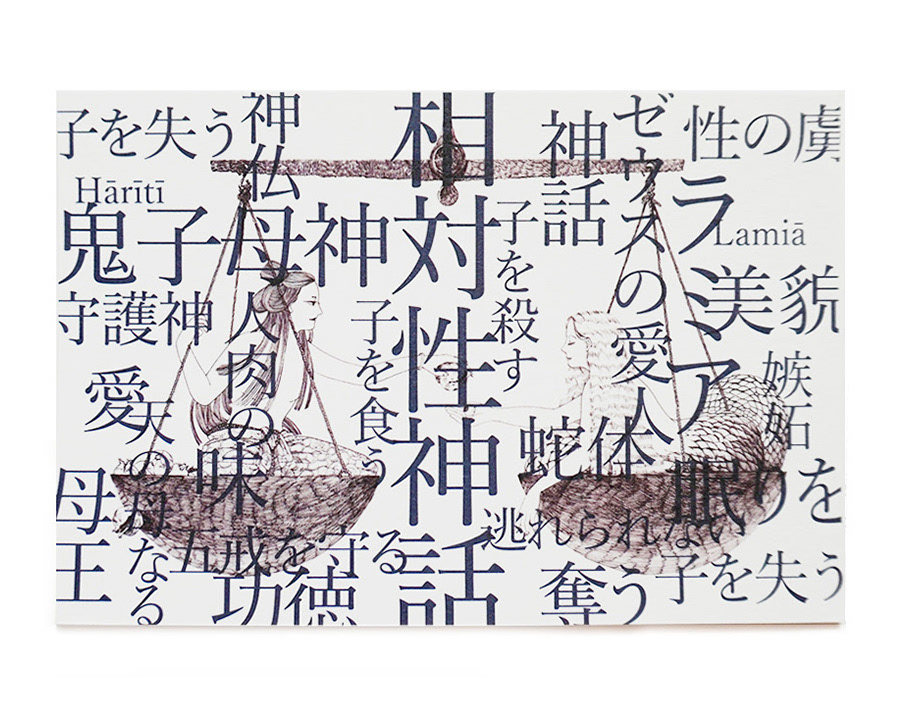 相対性神話
子を失う
神仏
Hārītī
鬼子母神
守護神
人肉の味
愛
天の母なる
母王
五戒を守る
功徳
子を食う
子を殺す
神話
ゼウスの愛人
性の虜
ラミア
Lamiā
美貌
嫉妬
蛇体
眠りを
逃れられない
奪う
子を失う